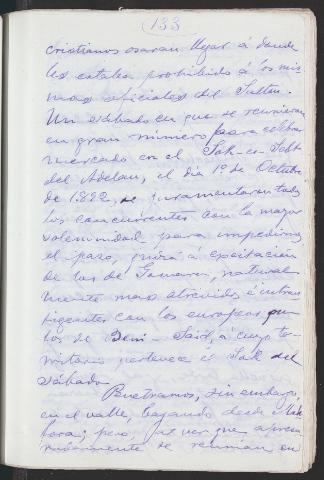 133
cristianos osaran llegar á donde
les estaba prohibido á los mis
mos oficiales del Sultan.
Un sábado en que se reunieron
en gran número para celebrar
mercado en el Sok-es-Sebt
del Adelau, el dia 1º de Octubre
de 1.892, se juramentaron todos
los concurrentes con la mayor
solemnidad para impedirnos
el paso, quizá á excitación
de los de natural
mente mas atrevidos é intran
sigentes con los europeos que
los de Beni-Said, á cuyo te-
rritorio pertenece el Sok del
Sábado.
Penetramos, sin embargo,
en el valle, bajando desde
pero, al ver que apresu
radamente se reunian en